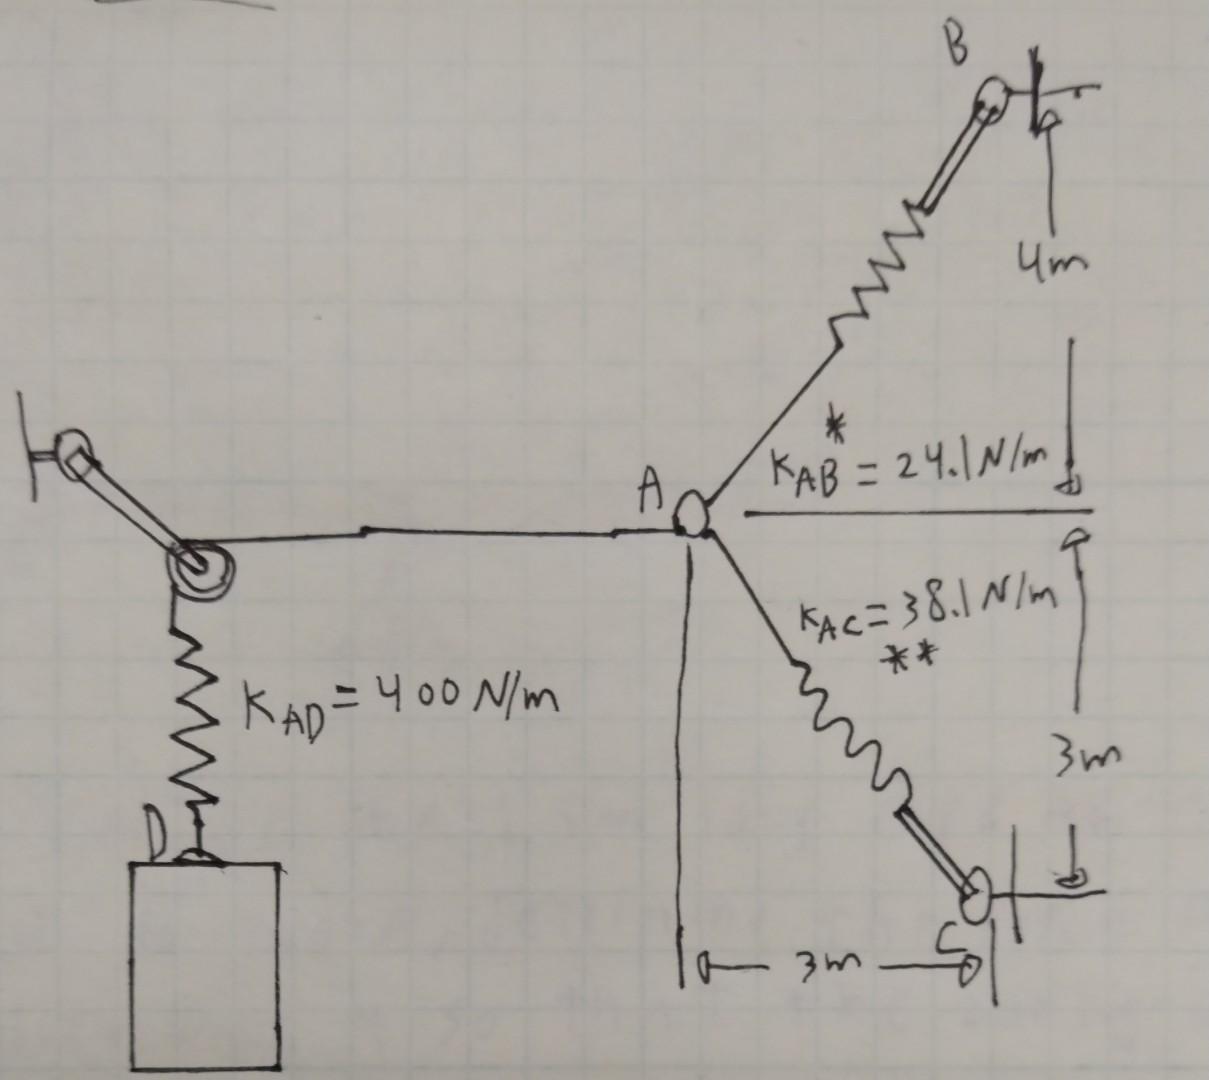 B
4m
A
*
KAB = 24.1 N/m
KAC = 38.1 N/m
**
KAD = 400 N/m
3m
D
C
3m